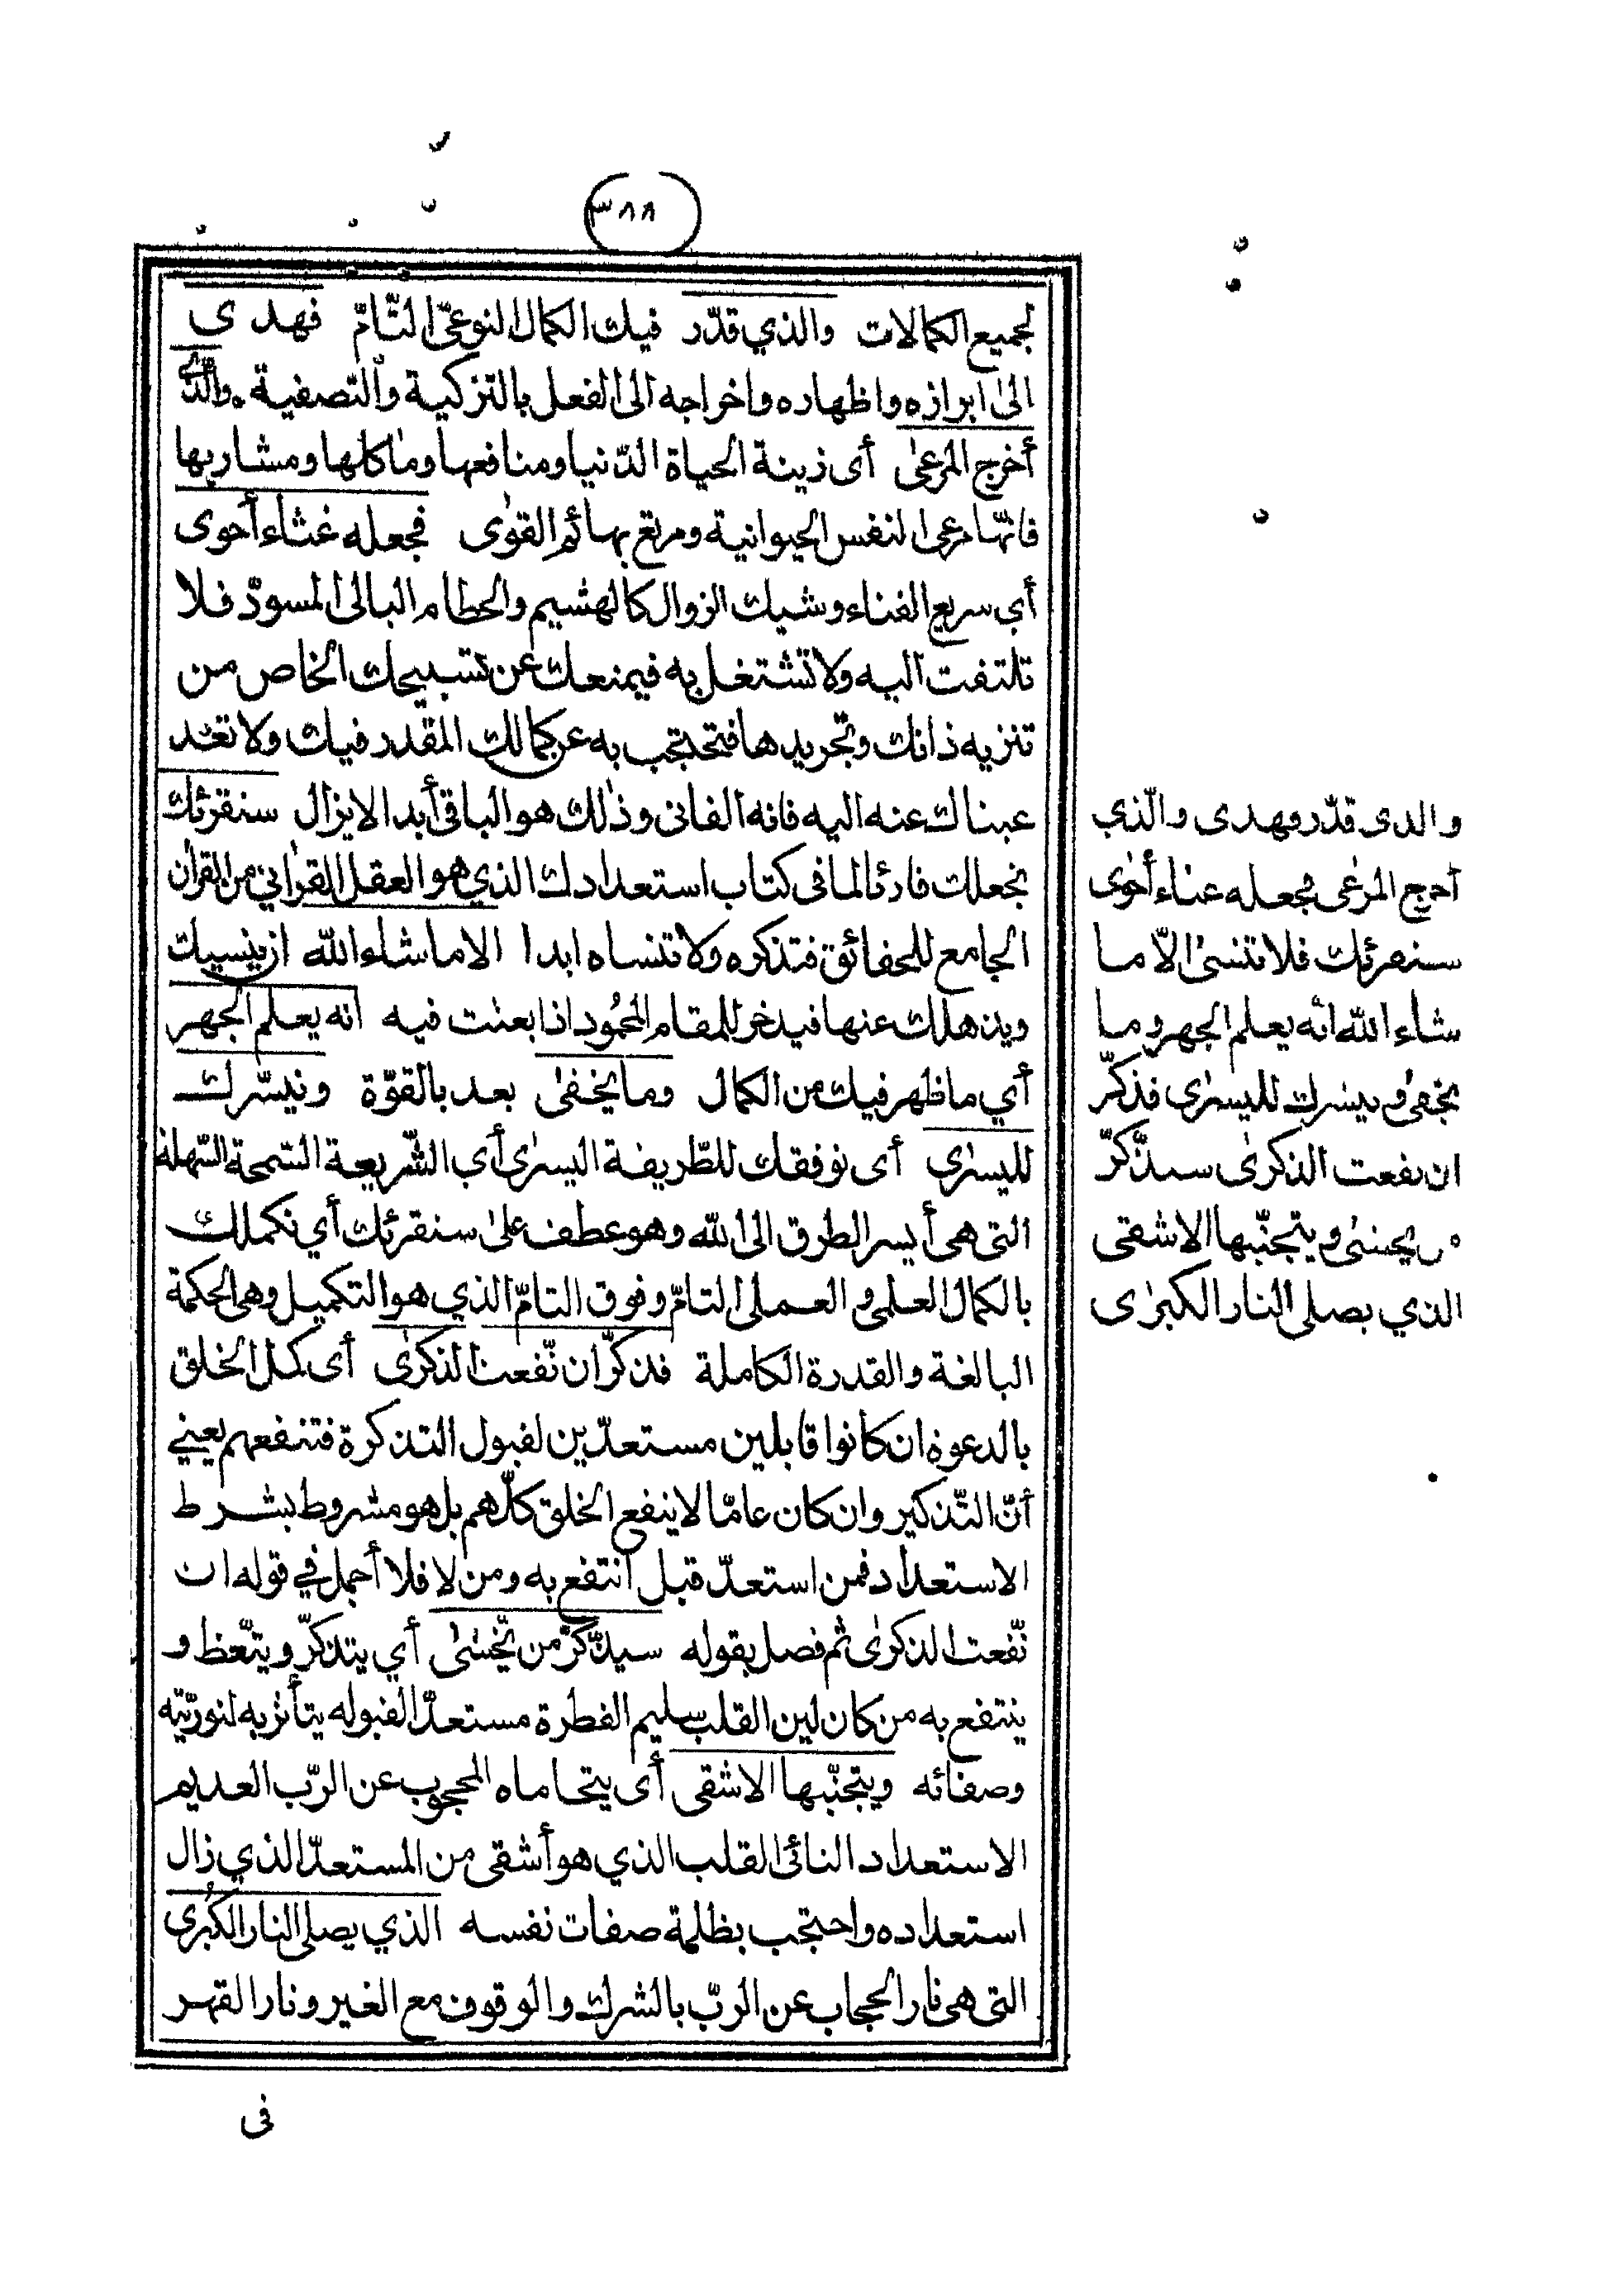 (٣٨٨)
لجميع الكمالات والذي قدّر فيك الكمال النوعيّ التّامّ فهدى
الى ابرازه واظهاره واخراجه الى الفعل بالتزكية والتّصفية والّذي
أخرج المرعىٰ أى زينة الحياة الدّنيا ومنافعها ومآكلها ومشاربها
فانّها مرعى النفس الحيوانية ومرتع بهائم القوٰى فجعله غثاء أحوى
أي سريع الفناء وشيك الزوال كالهشيم والحطام البالى المسودّ فلا
تلتفت اليه ولا تشتغل به فيمنعك عن تسبيحك الخاص من
تنزيه ذاتك وتجريدها فتحتجب به عن كمالك المقدر فيك ولا تعد
عيناك عنه اليه فانه الفانى وذٰلك هو الباقى أبدا لا يزال سنقرئك
نجعلك قارئا لما فى كتاب استعدادك الذي هو العقل القرآني من القرآن
الجامع للحقائق فتذكره ولا تنساه ابدا الا ما شاء الله ان ينسيك
ويذهلك عنها فيدخر للمقام المحمود اذا بعثت فيه انه يعلم الجهر
أي ما ظهر فيك من الكمال وما يخفىٰ بعد بالقوّة ونيسّرك
لليسرٰى أى نوفقك للطّريقة اليسرٰى أي الشّريعة السّمحة السّهلة
التى هى أيسر الطرق الى الله وهو عطف علىٰ سنقرئك أي نكملك
بالكمال العلمى و العملى التامّ وفوق التامّ الذي هو التكميل وهى الحكمة
البالغة والقدرة الكاملة فذكّر ان نّفعت الذكرٰى أى كمل الخلق
بالدعوة ان كانوا قابلين مستعدّين لقبول التذكرة فتنفعهم يعني
أنّ التّذكير وان كان عامّا لا ينفع الخلق كلّهم بل هو مشروط بشرط
الاستعداد فمن استعدّ قبل انتفع به ومن لا فلا أجمل في قوله ان
نّفعت الذكرٰى ثم فصل بقوله سيذّكّر من يّخشىٰ أي يتذكّر ويتّعظ و
ينتفع به من كان لين القلب سليم الفطرة مستعدّا لقبوله يتأثر به لنوريّته
وصفائه ويتجنّبها الاشقى أى يتحاماه المحجوب عن الربّ العديم
الاستعداد النائى القلب الذي هو أشقى من المستعدّ الذي زال
استعداده واحتجب بظلمة صفات نفسه الذي يصلى النار الكبرى
التى هى نار الحجاب عن الربّ بالشرك والوقوف مع الغير ونار القهر
فى
والذى قدّر فهدى والّذي
أخرج المرعٰى فجعله غثاء أحوٰى
سنقرئك فلا تنسىٰ الّا ما
شاء الله انّه يعلم الجهر وما
يخفىٰ ونيسّرك لليسرٰى فذكّر
ان نفعت الذكرىٰ سيذّكّر
من يخشىٰ ويتجنّبها الاشقى
الذي يصلى النار الكبرٰى